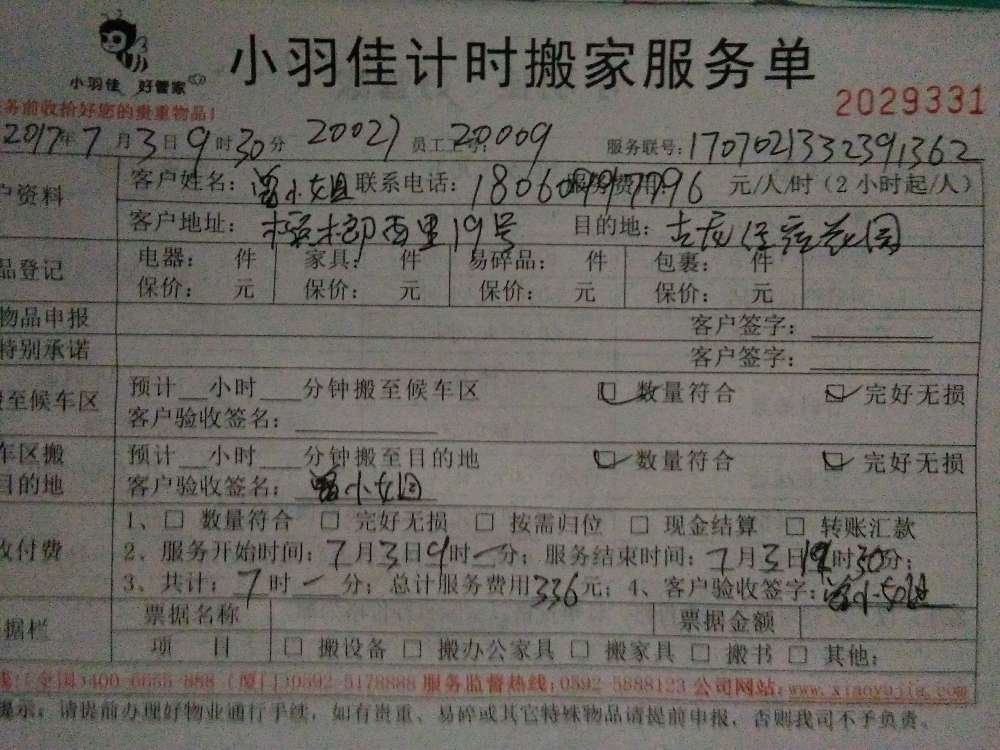 小羽佳计时搬家服务单
小羽佳 好管家
务前收拾好您的贵重物品!
2029331
2017年7月3日9时30分 20027 员工工号: 20009 服务联号:1707021332391362
户资料 客户姓名:曾小姐 联系电话: 服务费用 元/人/时(2小时起/人)
客户地址: 西里19号 目的地: 花园
品登记 电器: 件 家具: 件 易碎品: 件 包裹: 件
保价: 元 保价: 元 保价: 元 保价: 元
物品申报 客户签字:
特别承诺 客户签字:
至候车区 预计 小时 分钟搬至候车区 数量符合 完好无损
客户验收签名:
车区搬 预计 小时 分钟搬至目的地 数量符合 完好无损
目的地 客户验收签名: 曾小姐
1、□ 数量符合 □ 完好无损 □ 按需归位 □ 现金结算 □ 转账汇款
收付费 2、服务开始时间:7月3日9时一分;服务结束时间:7月3日 时30分;
3、共计:7时一分;总计服务费用336元;4、客户验收签字:曾小姐
据栏 票据名称 票据金额
项 目 □ 搬设备 □ 搬办公家具 □ 搬家具 □ 搬书 □ 其他:
线(全国)400-6655-888 (厦门)0592-5178888 服务监督热线:0592-5888123 公司网站:www.xiaoyujia.com
提示:请提前办理好物业通行手续,如有贵重、易碎或其它特殊物品请提前申报,否则我司不予负责。